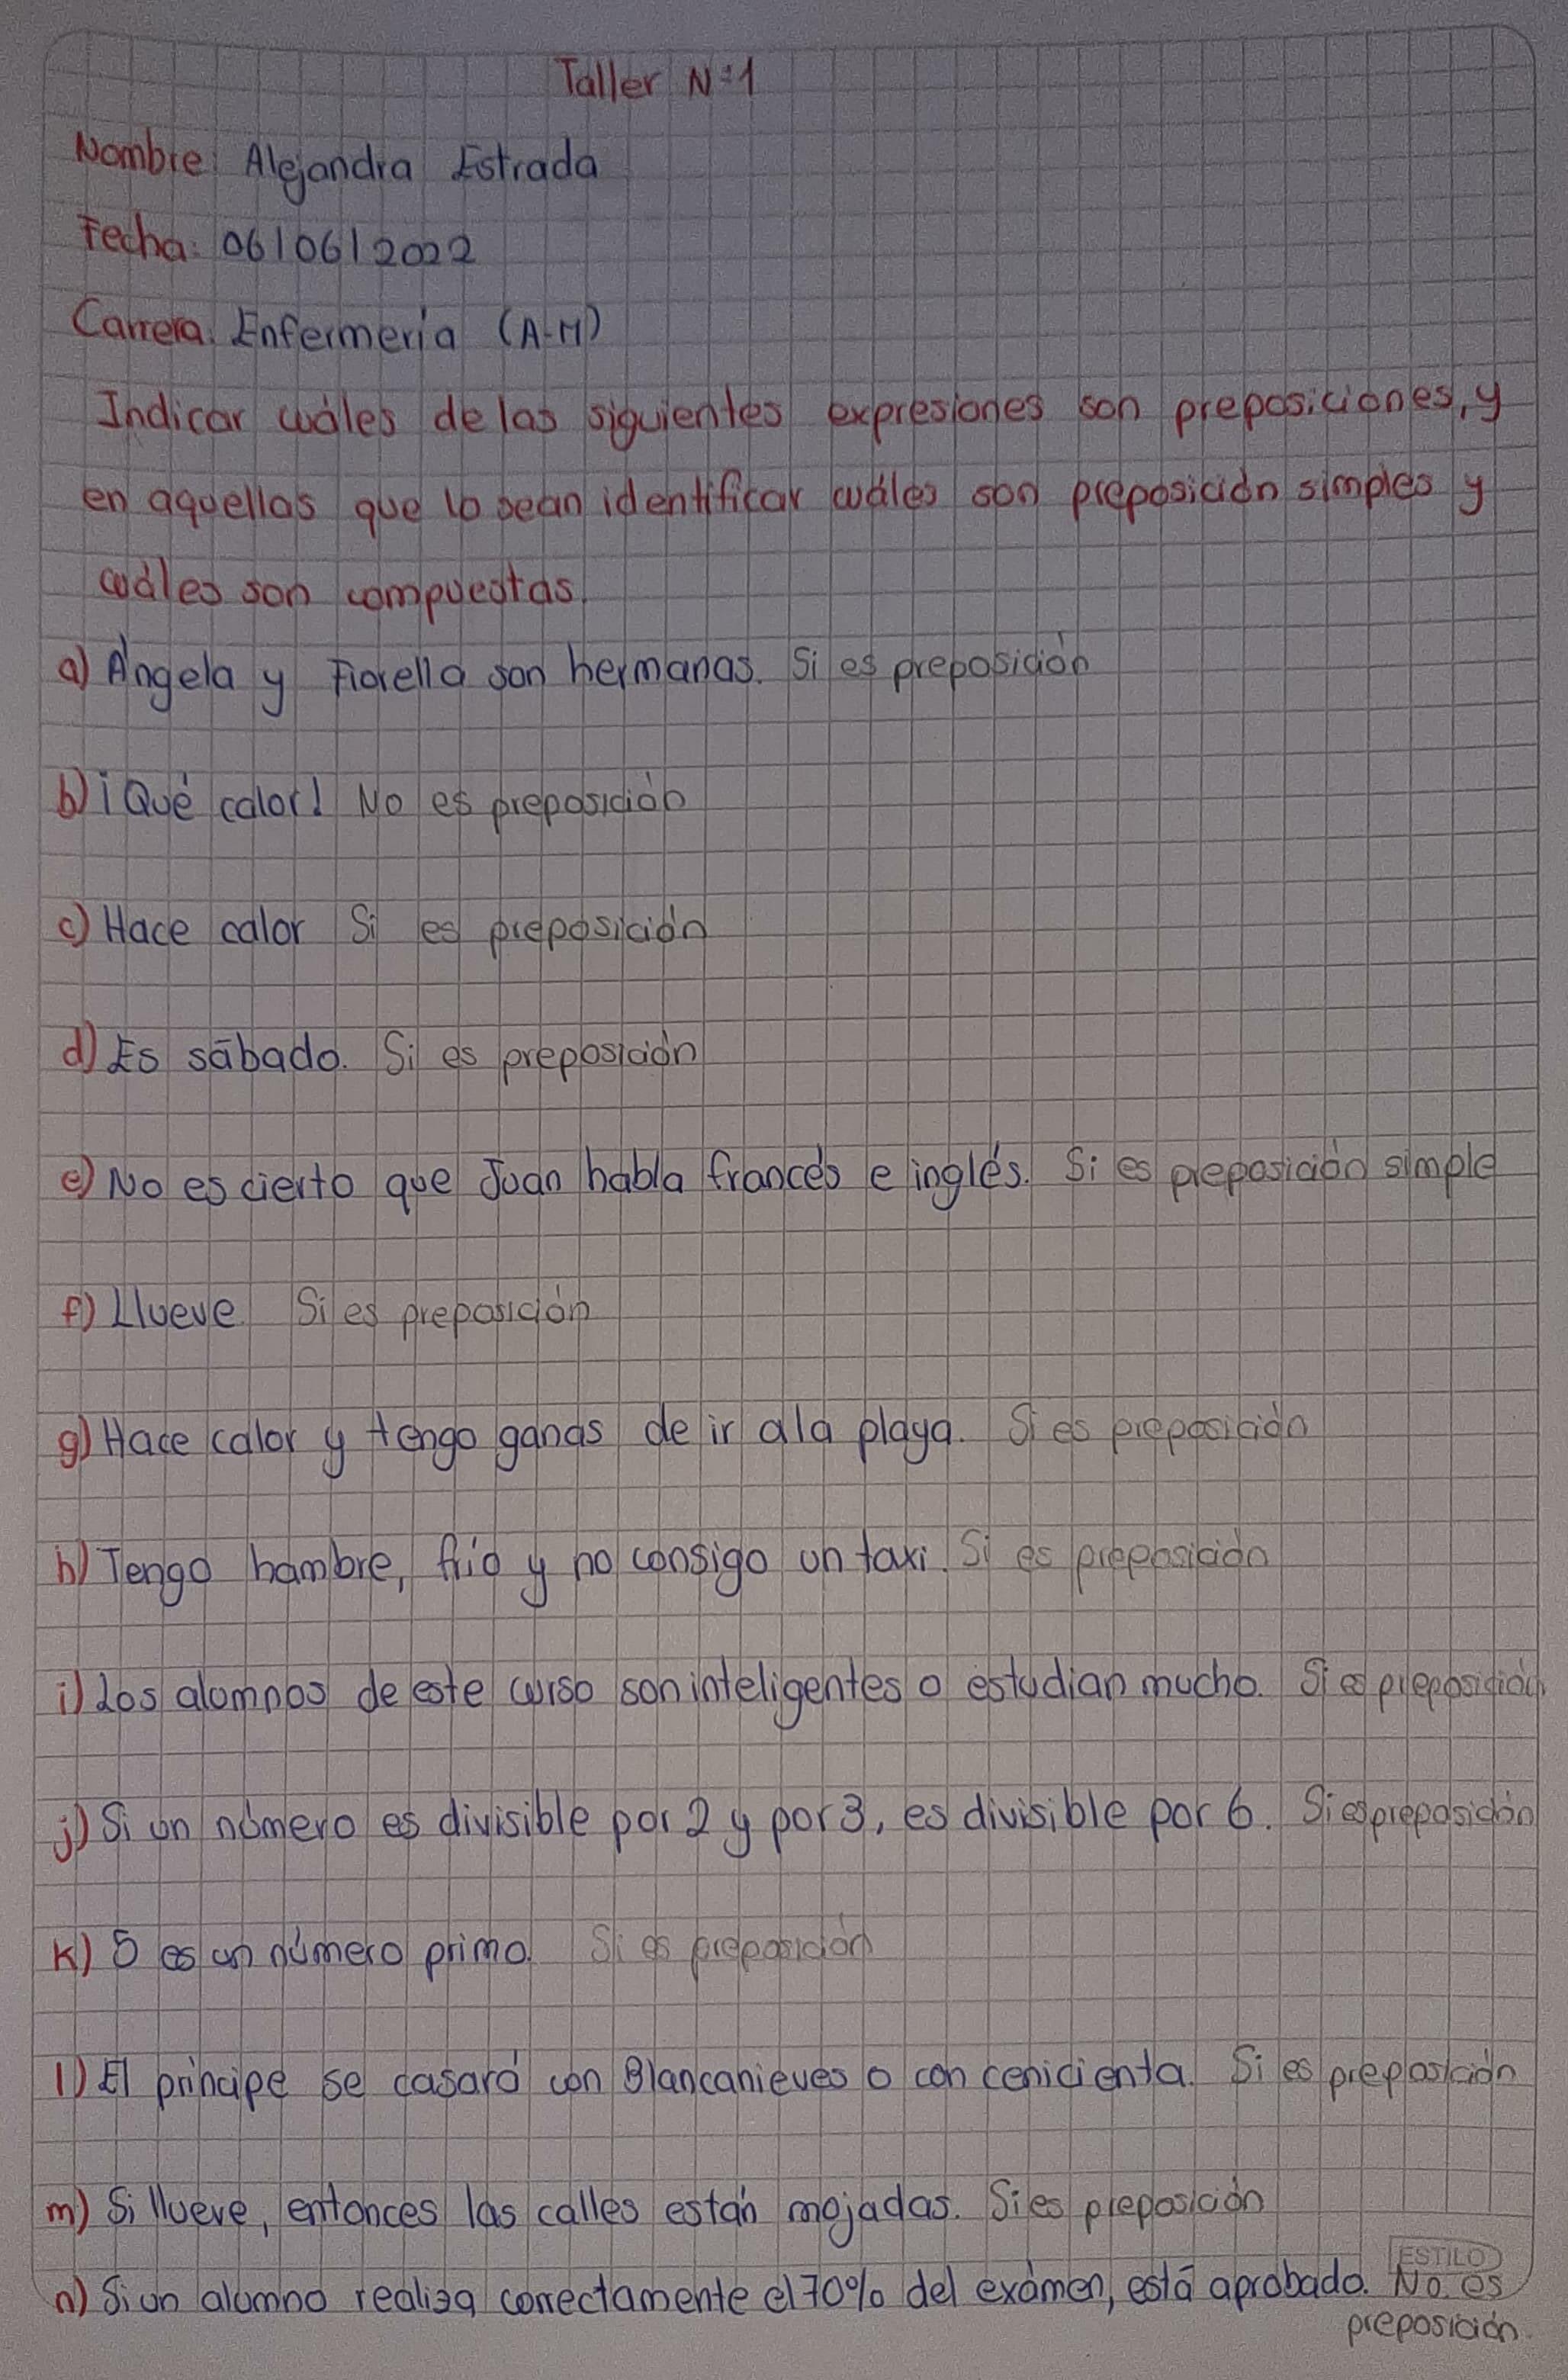 Taller N°1
Nombre: Alejandra Estrada
Fecha: 06/06/2022
Carrera: Enfermeria (A-M)
Indicar cuáles de las siguientes expresiones son preposiciones, y
en aquellas que lo sean identificar cuáles son preposición simples y
cuáles son compuestas.
a) Ángela y Fiorella son hermanas. Si es preposición
b) ¡Qué calor! No es preposición
c) Hace calor Si es preposición
d) Es sábado. Si es preposición
e) No es cierto que Juan habla francés e inglés. Si es preposición simple
f) Llueve Si es preposición
g) Hace calor y tengo ganas de ir a la playa. Si es preposición
h) Tengo hambre, frío y no consigo un taxi. Si es preposición
i) Los alumnos de este curso son inteligentes o estudian mucho. Si es preposición
j) Si un número es divisible por 2 y por 3, es divisible por 6. Si es preposición
K) 5 es un número primo. Si es preposición
l) El príncipe se casará con Blancanieves o con cenicienta. Si es preposición
m) Si llueve, entonces las calles están mojadas. Si es preposición
ESTILO
n) Si un alumno realiza correctamente el 70% del exámen, está aprobado. No es
preposición.